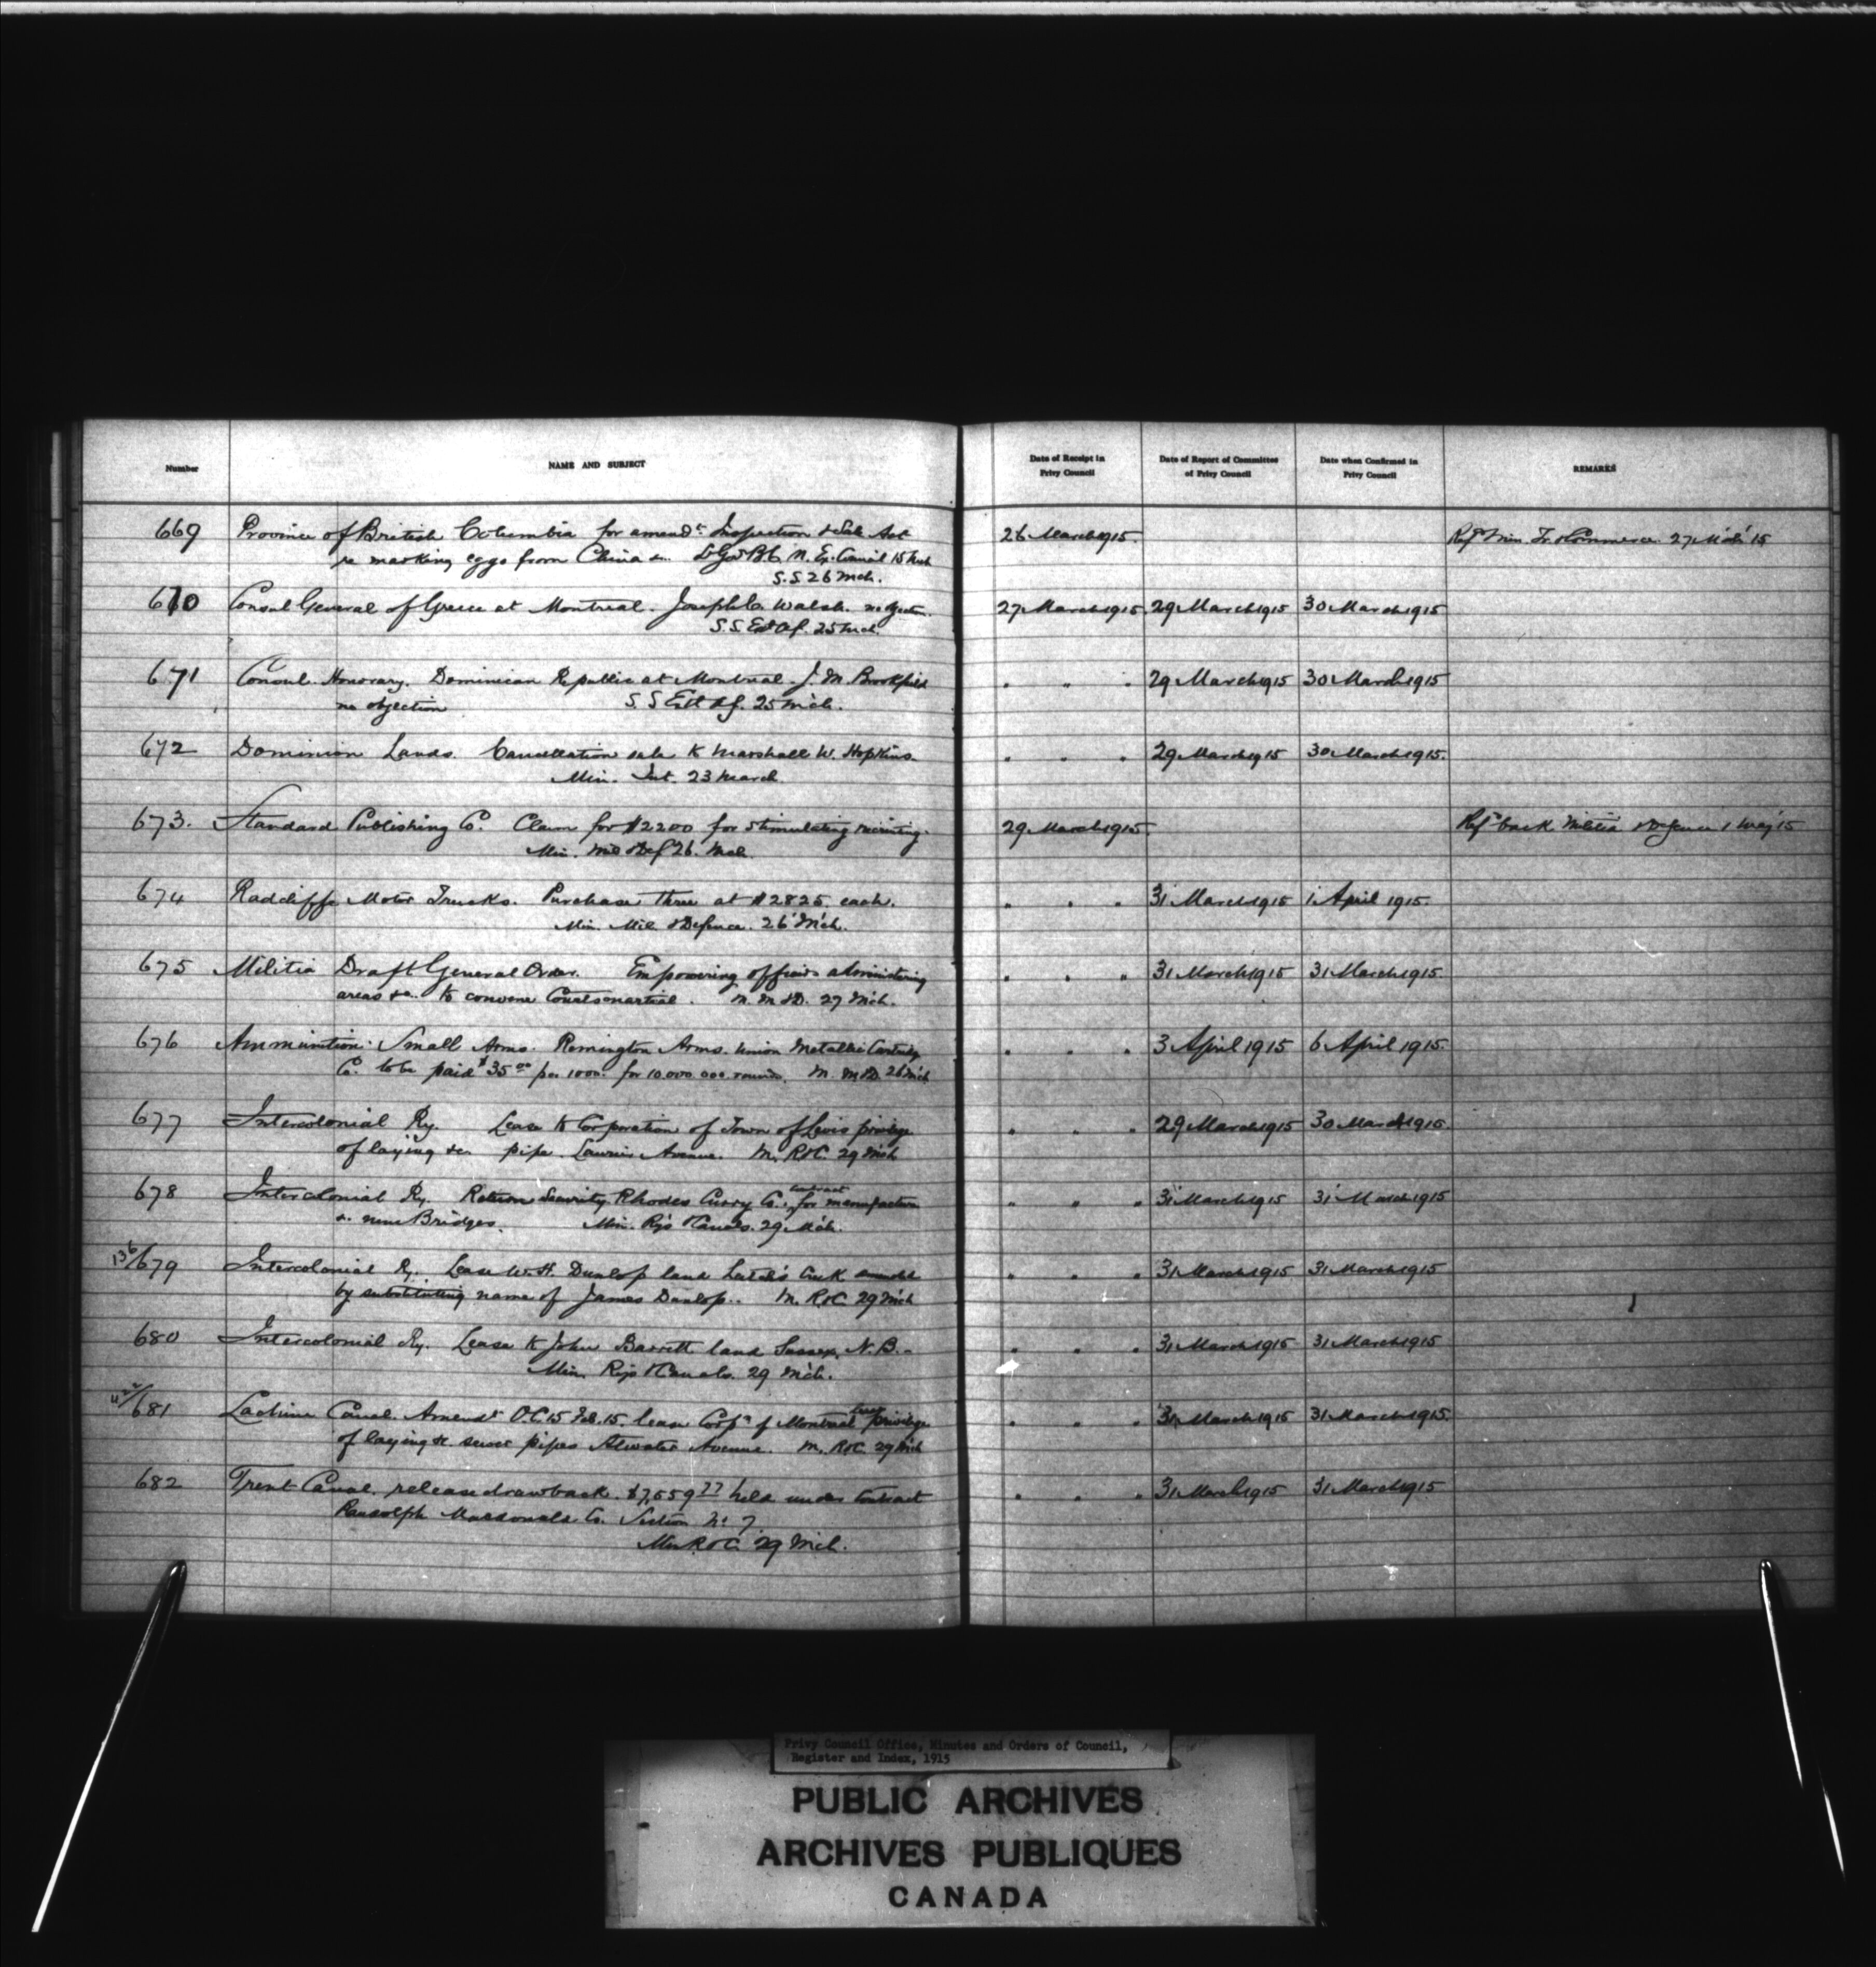 Number
NAME AND SUBJECT
Date of Receipt in
Privy Council
Date of Report of Committee
of Privy Council
Date when Confirmed in
Privy Council
REMARKS
669 Province of British Columbia for amendt. Inspection & Sale Act 26 March 1915. Refd Min. Tr. & Commerce. 27 Mch '15
re marking eggs from China &c. Lt Gov B.C. M. Ex. Council 15 Mch
S.S. 26 Mch.
670 Consul General of Greece at Montreal. Joseph C. Walsh. no objection. 27 March 1915 29 March 1915 30 March 1915
S.S. Ext Af. 25 Mch.
671 Consul Honorary. Dominican Republic at Montreal. J. M. Brookfield " " " 29 March 1915 30 March 1915
no objection S.S Ext Af. 25 Mch.
672 Dominion Lands. Cancellation sale to Marshall W. Hopkins. " " " 29 March 1915 30 March 1915.
Min. Int. 23 March
673. Standard Publishing Co. Claim for $2200 for stimulating recruiting. 29 March 1915. Refd back Militia & Defence 1 May '15
Min. Mil & Def 26. Mch
674 Radcliffe Motor Trucks. Purchase three at $2825 each. " " " 31 March 1915 1 April 1915.
Min. Mil & Defence. 26 Mch.
675 Militia Draft General Order. Empowering officers administering " " " 31 March 1915 31 March 1915
areas &c. to convene Courts martial. M. M & D. 27 Mch.
676 Ammunition: Small Arms. Remington Arms. Union Metallic Cartridge " " " 3 April 1915 6 April 1915.
Co. to be paid $35.00 per 1000. for 10.000.000 rounds. M. M & D. 26 Mch
677 Intercolonial Ry. Lease to Corporation of Town of Levis privilege " " " 29 March 1915 30 March 1915
of laying &c. pipe. Laurier Avenue. M. R & C. 29 Mch
678 Intercolonial Ry. Return Security Rhodes Curry Co., contract for manufacture " " " 31 March 1915 31 March 1915
&c. nine Bridges. Min. Rys & Canals. 29 Mch.
136/679 Intercolonial Ry. Lease W. H. Dunlop land Creek amended " " " 31 March 1915 31 March 1915
by substituting name of James Dunlop.. M. R & C. 29 Mch
680 Intercolonial Ry. Lease to John Barrett land Sussex, N.B. " " " 31 March 1915 31 March 1915
Min. Rys & Canals. 29 Mch.
681 Lachine Canal. Amendt O.C. 15 Feb. 15. lease Corpn of Montreal privilege " " " 31 March 1915 31 March 1915.
of laying &c sewer pipes Atwater Avenue. M. R & C. 29 Mch
682 Trent Canal. release drawback. $7,559 77 held under Contract " " " 31 March 1915 31 March 1915
Randolph Macdonald Co. Section No 7.
Min R & C. 29 Mch.
Privy Council Office, Minutes and Orders of Council,
Register and Index, 1915
PUBLIC ARCHIVES
ARCHIVES PUBLIQUES
CANADA